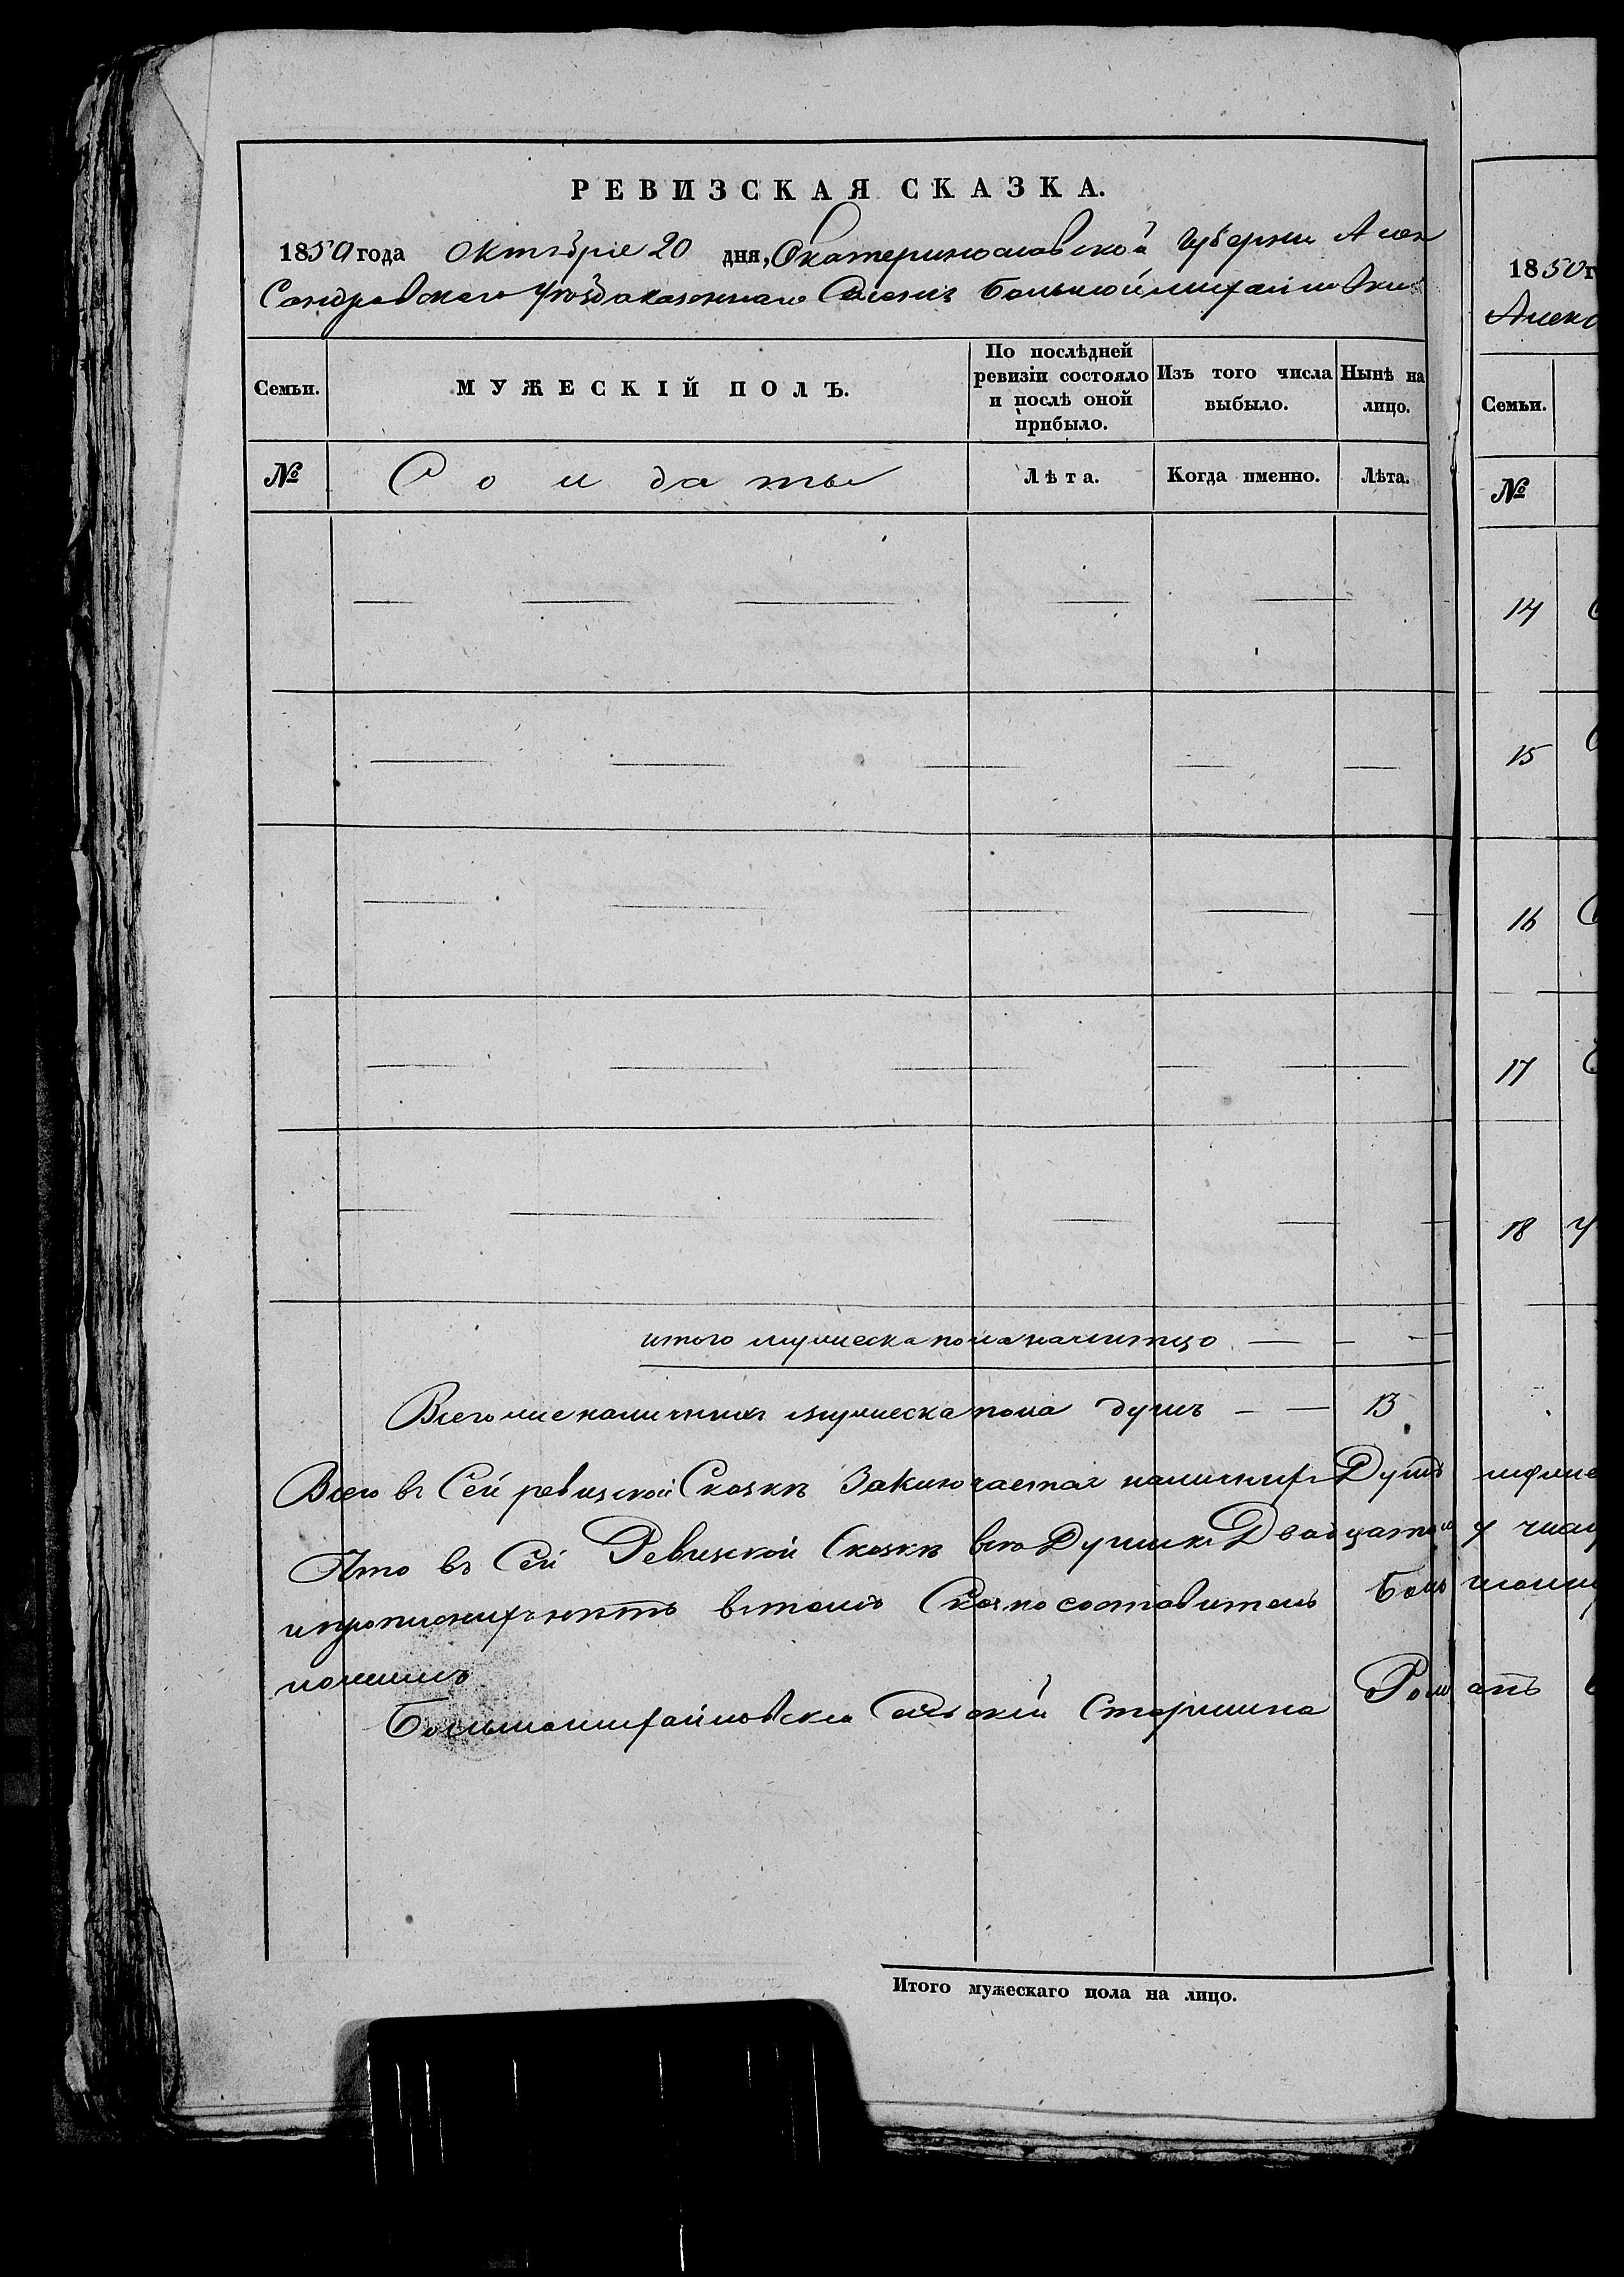 РЕВИЗСКАЯ СКАЗКА.
1850 года Октябріе 20 дня, Екатеринославской Губерни Алек
Сандровскаго уѣзда казеннаго Селенія Большой михайловки
Семьи.
МУЖЕСКІЙ ПОЛЪ.
По послѣдней ревизіи состояло и послѣ оной прибыло.
Изъ того числа выбыло.
Нынѣ на лицо.
№
Солдаты
Лѣта.
Когда именно.
Лѣта.
итого мужеска пола налитцо
Всего мужеска пола душъ 13
Всего въ Сей ревизской Сказкѣ Заключается наличних Душъ
Что въ Сей Ревизской Сказкѣ всѣ Души к Двадцатом
въ томъ Сказкосоставитель Боль
Большамихайловски Сельскій Старшина Ром
Итого мужескаго пола на лицо.
1850 г
Алекс
Семьи.
№
14
15
16
17
18
мужес
у числу
шами
анъ